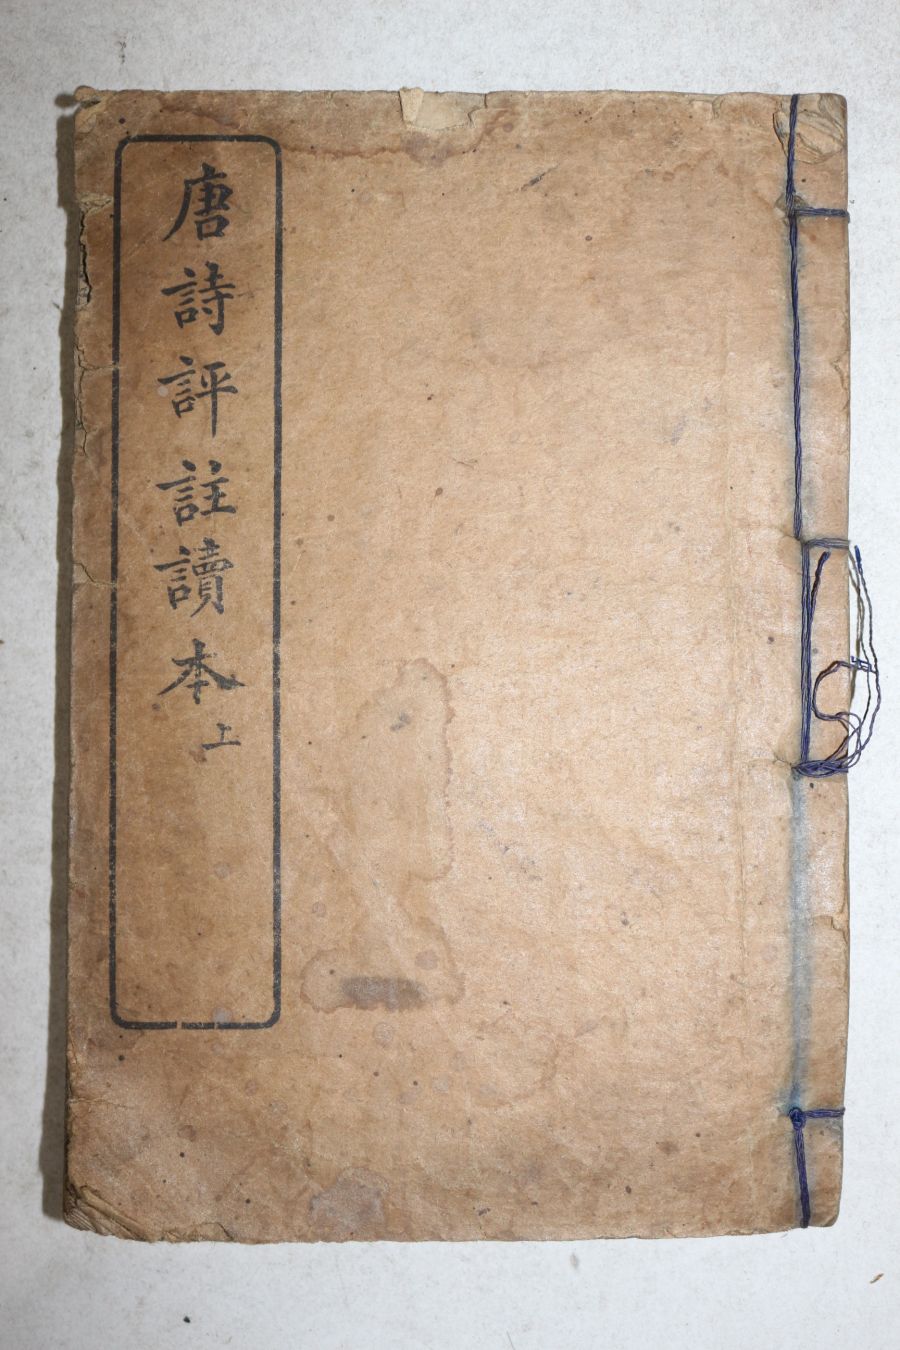 唐詩評註讀本上